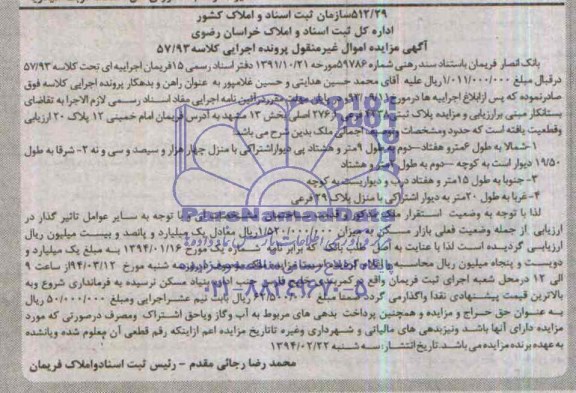 ۵۱۲/۲۹سازمان ثبت اسناد و املاک کشور
اداره کل ثبت اسناد و املاک خراسان رضوی
آگهی مزایده اموال غیرمنقول پرونده اجرایی کلاسه ۵۷/۹۳
بانک انصار فریمان باستناد سند رهنی شماره ۵۹۷۸۶مورخه ۱۳۹۱/۱۰/۲۱ دفتر اسناد رسمی ۱۵فریمان اجراییه ای تحت کلاسه ۵۷/۹۳
درقبال مبلغ ۱/۰۱۱/۰۰۰/۰۰۰ریال علیه آقای محمد حسین هدایتی و حسین غلامپور به عنوان راهن و بدهکار پرونده اجرایی کلاسه فوق
صادرنموده که پس ازابلاغ اجراییه ها درمورخ آئین نامه اجرایی مفاد اسناد رسمی لازم الاجرا به تقاضای
بستانکار مبنی برارزیابی و مزایده پلاک ثبتی ۲۷۶ اصلی بخش ۱۳ مشهد به آدرس فریمان امام خمینی ۱۲ پلاک ۲۰ ارزیابی
وقطعیت یافته است که حدود ومشخصات اجمالی ملک بدین شرح می باشد
۱-شمالا به طول ۶مترو هفتاد-دوم به طول ۹متر و هشتاد پی دیواراشتراکی با منزل چهار هزار و سیصد و سی و نه ۲- شرقا به طول
۱۹/۵۰ دیوار است به کوچه -دوم به طول متر و هشتاد
۳- جنوبا به طول ۱۵متر و هفتاد درب و دیواریست به کوچه
۴- غربا به طول ۲۰متر به دیوار اشتراکی با منزل پلاک ۲۹فرعی
لذا با توجه به وضعیت استقرار ملک با توجه به سایر عوامل تاثیر گذار در
ارزیابی از جمله وضعیت فعلی بازار مسکن به میزان ۱/۵۲۰/۰۰۰/۰۰۰ریال معادل یک میلیارد و پانصد و بیست میلیون ریال
ارزیابی گردیده است لذا با عنایت به اصل طلب بانک که برابر نامه شماره مورخ ۱۳۹۴/۰۱/۱۶ به مبلغ یک میلیارد و
دویست و پنجاه میلیون ریال محاسبه و اعلام شنبه مورخ ۹۴/۰۳/۱۲از ساعت ۹
الی ۱۲ درمحل شعبه اجرای ثبت فریمان واقع در بنیاد مسکن نرسیده به فرمانداری شروع وبه
بالاترین قیمت پیشنهادی نقدا واگذارمی گردد ضمنا مبلغ ریال بابت نیم عشراجرایی ومبلغ ۵۰/۰۰۰/۰۰۰ ریال
به عنوان حق حراج و مزایده و همچنین پرداخت بدهی های مربوط به آب وگاز وباحق اشتراک ومصرف درصورتی که مورد
مزایده دارای آنها باشد ونیزبدهی های مالیاتی و شهرداری وغیره تاتاریخ مزایده اعم ازاینکه رقم قطعی آن معلوم شده ویانشده
به عهده برنده مزایده می باشد. تاریخ انتشار: سه شنبه ۱۳۹۴/۰۲/۲۲
محمد رضا رجائی مقدم - رئیس ثبت اسنادواملاک فریمان
۰۲۱-۸۸۳۴۹۶۷۰-۵